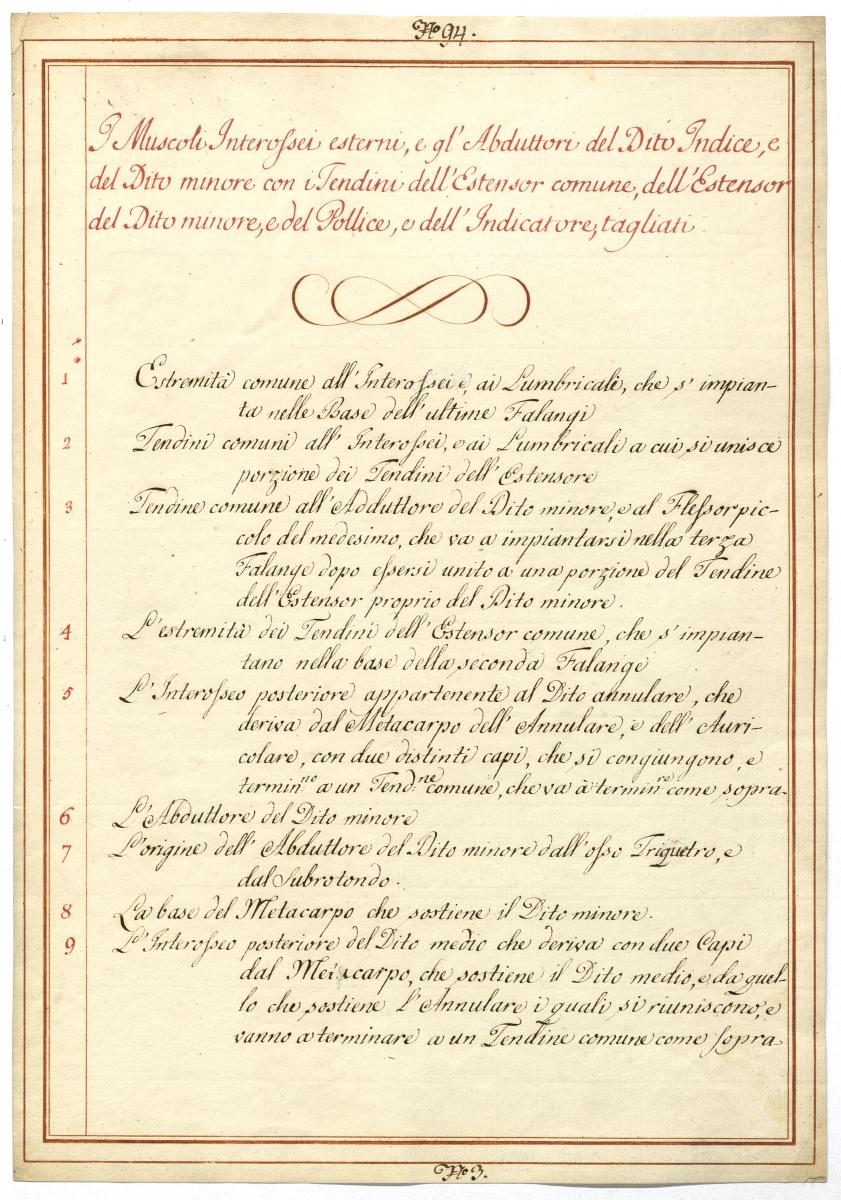 No 94.
I Muscoli Interossei esterni, e gl' Abduttori del Dito Indice, e
del Dito minore con i Tendini dell'Estensor comune, dell'Estensor
del Dito minore, e del Pollice, e dell'Indicatore, tagliati
1 Estremità comune all'Interossei e, ai Lumbricali, che s'impian-
ta nelle Base dell'ultime Falangi
2 Tendini comuni all'Interossei, e ai Lumbricali a cui si unisce
porzione dei Tendini dell'Estensore
3 Tendine comune all'Adduttore del Dito minore, e al Flessor pic-
colo del medesimo, che va a impiantarsi nella terza
Falange dopo essersi unito a una porzione del Tendine
dell'Estensor proprio del Dito minore.
4 L'estremità dei Tendini dell'Estensor comune, che s'impian-
tano nella base della seconda Falange
5 L'Interosseo posteriore appartenente al Dito annulare, che
deriva dal Metacarpo dell'Annulare, e dell'Auri-
colare, con due distinti capi, che si congiungono, e
termin.no a un Tend.ne comune, che va à termin.re come sopra.
6 L'Abduttore del Dito minore
7 L'origine dell'Abduttore del Dito minore dall'osso Triquetro, e
dal Subrotondo.
8 La base del Metacarpo che sostiene il Dito minore.
9 L'Interosseo posteriore del Dito medio che deriva con due Capi
dal Metacarpo, che sostiene il Dito medio, e da quel-
lo che sostiene l'Annulare i quali si riuniscono, e
vanno a terminare a un Tendine comune come sopra
No 3.